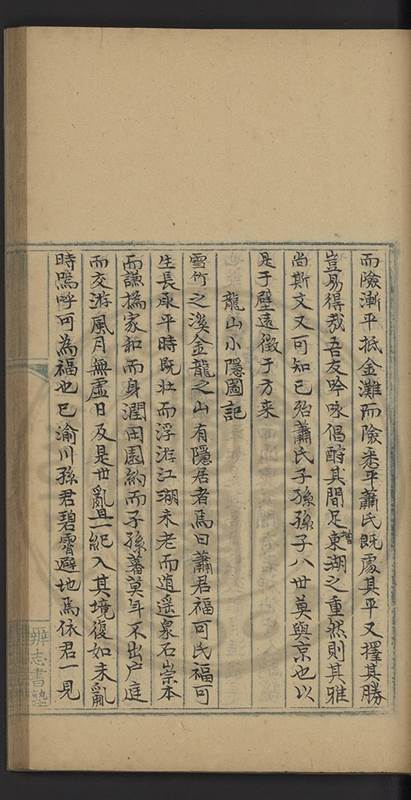 而險漸平抵金灘而險悉平蕭氏既處其平又擇其勝
豈易得哉吾友吟咏倡酧其間足為東湖之重然則其雅
尚斯文又可知已殆蕭氏子孫孫子八世莫與京也以
是于壁遠徵于方来
龍山小隱圖記
雪竹之溪金龍之山有隱居者焉曰蕭君福可氏福可
生長承平時既壯而浮游江湖未老而逍遥泉石崇本
而謙撝家和而身潤田園約而子孫蕃莫年不出户庭
而交游風月無虛日及是世亂且一紀入其境復如未亂
時嗚呼可為福也已渝川孫君碧霄避地焉依君一見
辨志書塾